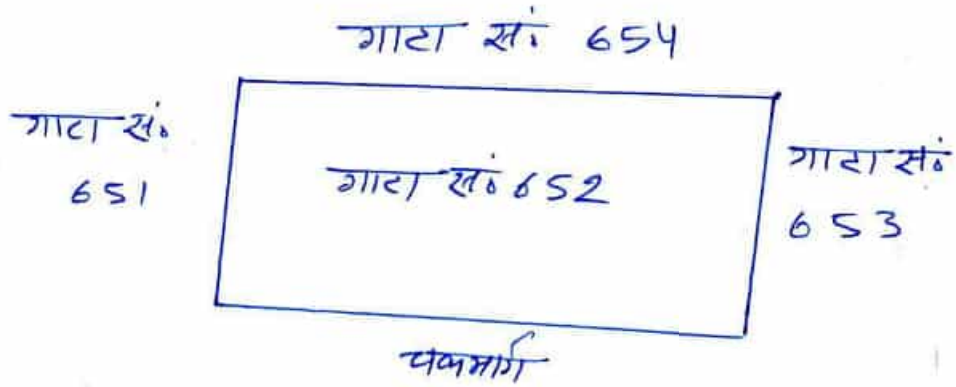 गाटा सं. 654
गाटा सं.
651
गाटा सं. 652
गाटा सं.
653
चकमार्ग